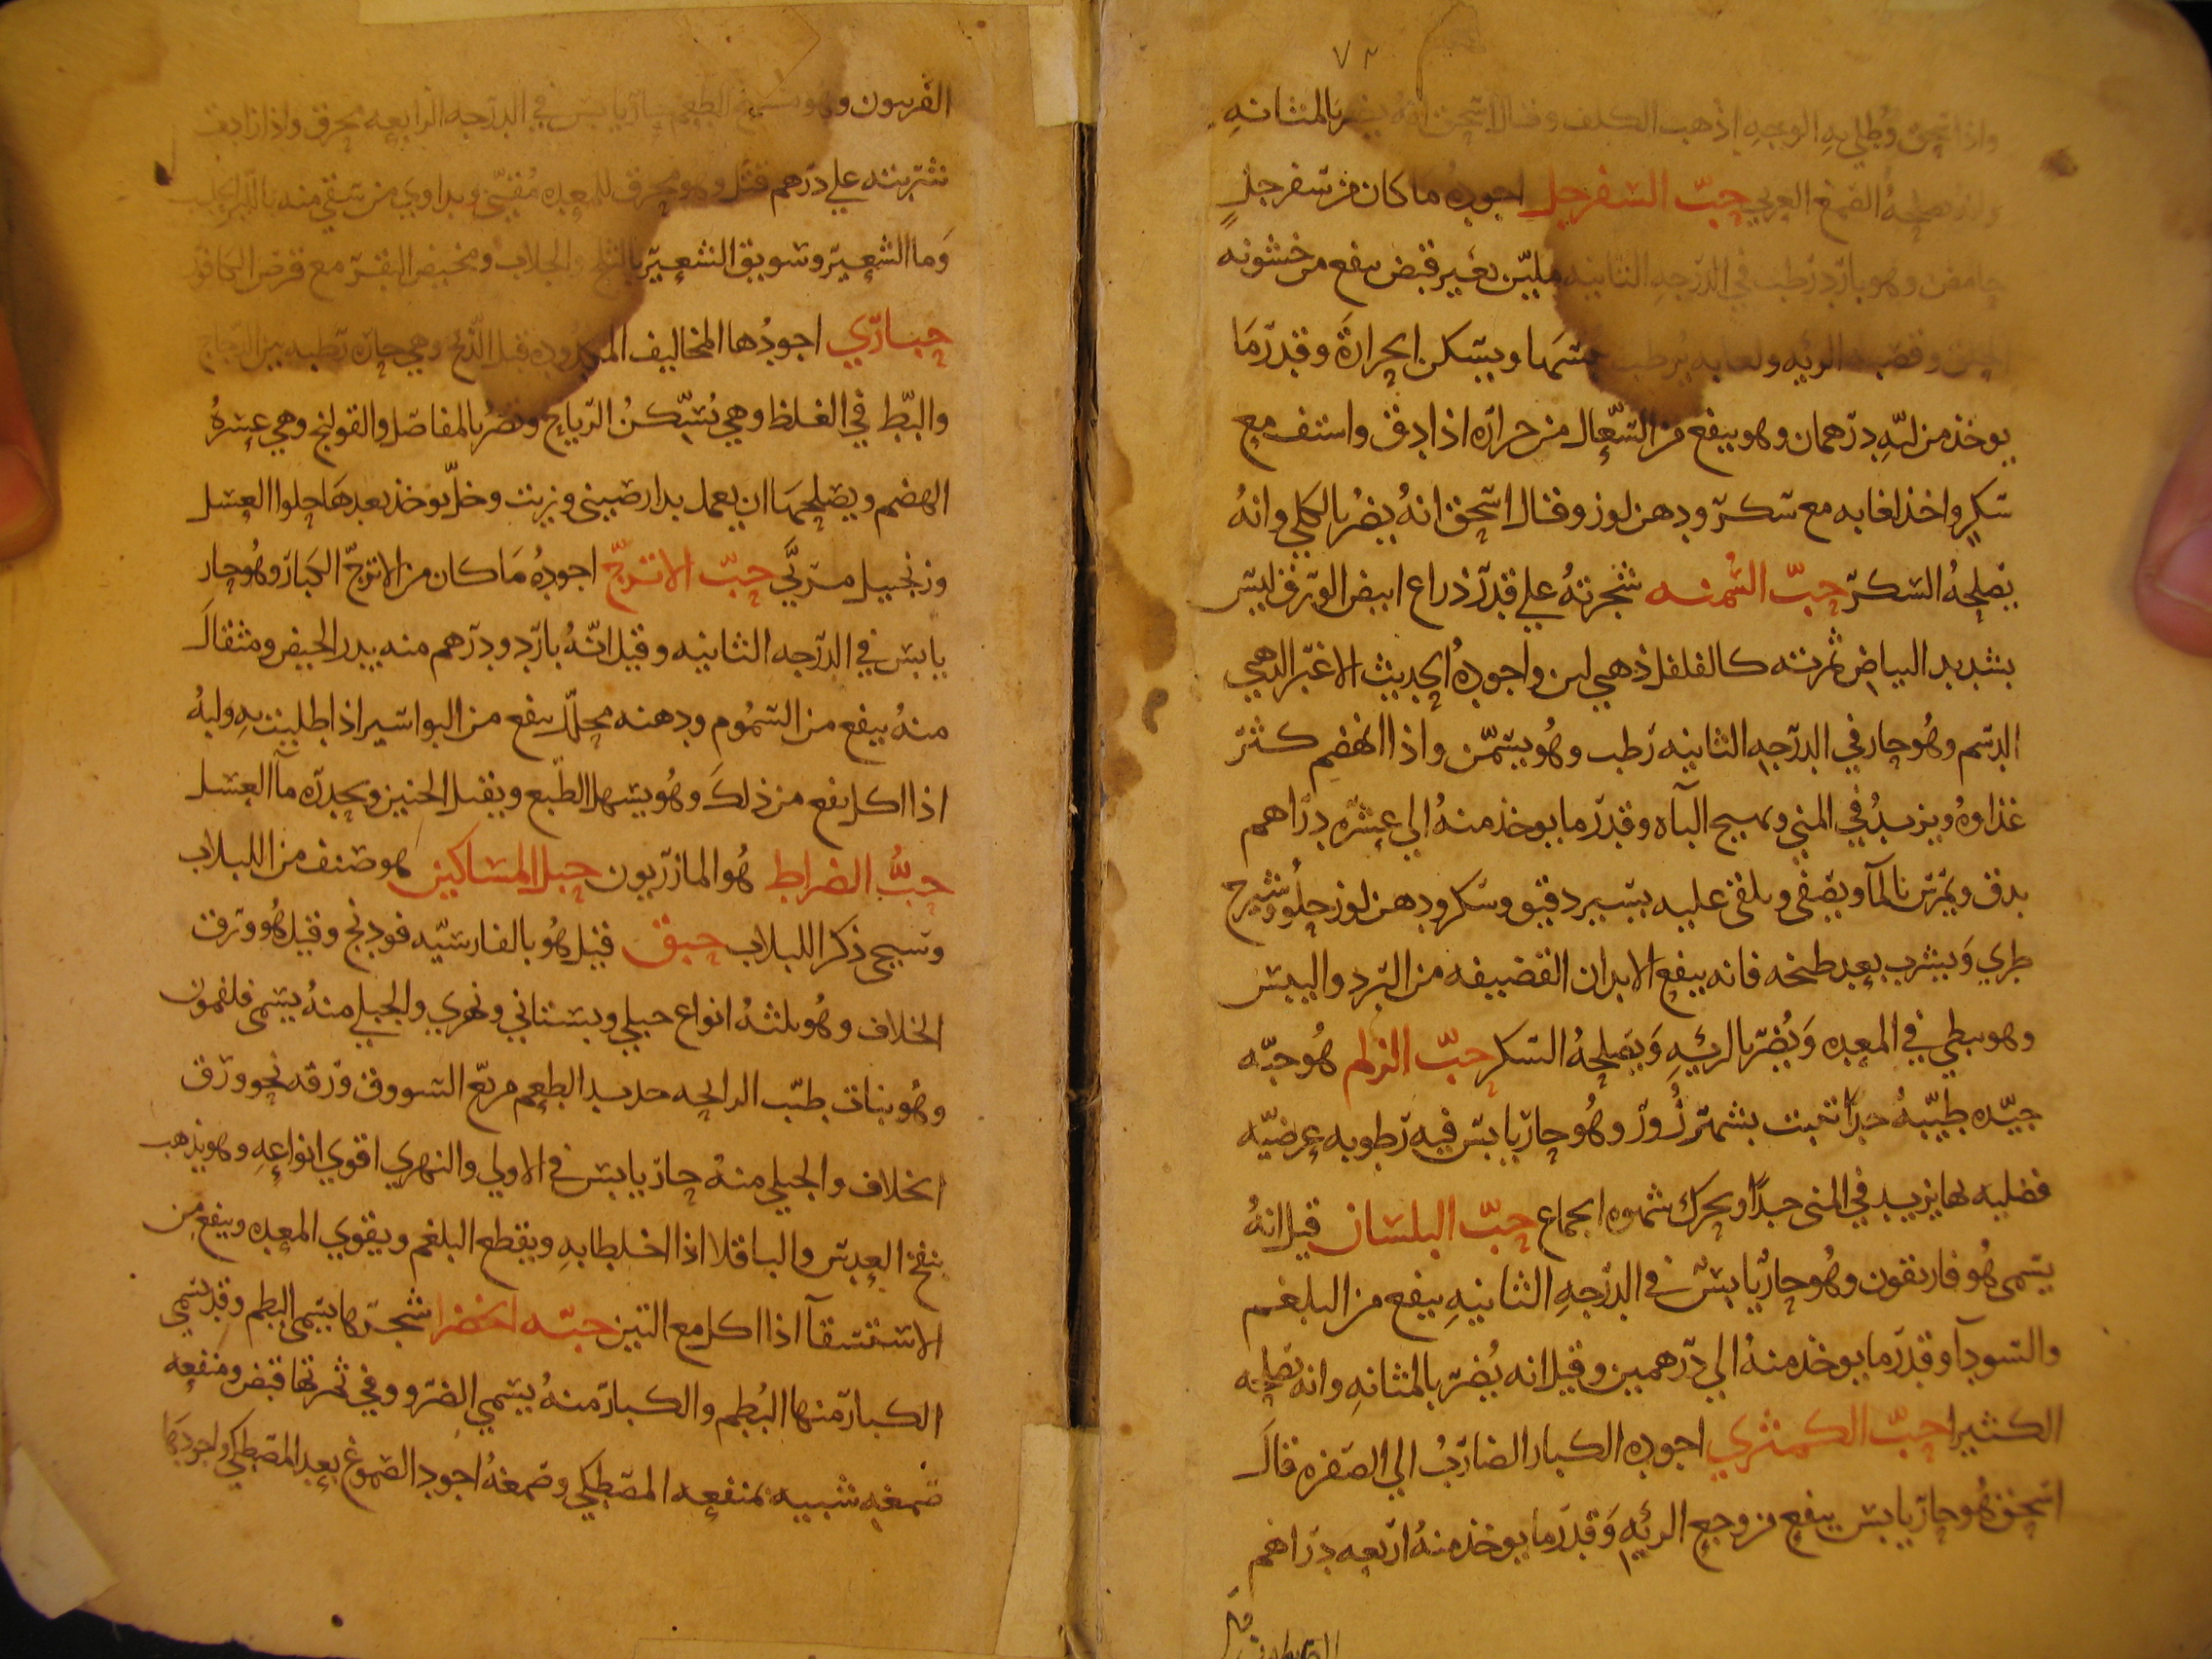 ٧٣
واذا سحق وطلي به الوجه اذهب الكلف وقال اسحق انه يضر بالمثانه
وانه يصلحه الصمغ العربي حب السفرجل اجوده ما كان من سفرجل
حامض وهو بارد رطب في الدرجه الثانيه ملين بغير قبض ينفع من خشونه
الحلق وقصبه الريه ولعابه يرطب ويسكن الحراره وقدر ما
يوخذ من لبه درهمان وهو ينفع من السعال من حراره اذا ادق واستف مع
سكر واخذ لعابه مع سكر ودهن لوز وقال اسحق انه يضر بالكلي وانه
يصلحه السكر حب السمنه شجرته علي قدر ذراع ابيض الورق ليس
بشديد البياض ثمرته كالفلفل ذهبي لين واجوده الحديث الاغبر الذهبي
الدسم وهو حار في الدرجه الثانيه رطب وهو يسمن واذا انهضم كثر
غذاوه ويزيد في المني ويهيج الباه وقدر ما يوخذ منه الي عشره دراهم
يدق ويمرس بالمآ ويصفي ويلقي عليه يسير دقيق وسكر ودهن لوز حلو وشيرج
طري ويشرب بعد طبخه فانه ينفع الابدان القضيفه من البرد واليبس
وهو بطي في المعده ويضر بالريه ويصلحه السكر حب الزلم هو حبه
جيده طيبه جدا تنبت بشهرزور وهو حار يابس فيه رطوبه عرضيه
فضليه بها يزيد في المني جدا ويحرك شهوه الجماع حب البلسان قيل انه
يسمي هوفاريقون وهو حار يابس في الدرجه الثانيه ينفع من البلغم
والسودآ وقدر ما يوخذ منه الي درهمين وقيل انه يضر بالمثانه وانه يصلحه
الكثيرا حب الكمثري اجوده الكبار الضارب الي الصفره قال
اسحق هو حار يابس ينفع من وجع الريه وقدر ما يوخذ منه اربعه دراهم
الفربيون وهو الطعم حار يابس في الدرجه الرابعه محرق واذا زادت
شربته علي درهم قتل وهو محرق للمعده مقيي ويداوي من سقي منه باللبن الحليب
وما الشعير وسويق الشعير بالثلج والجلاب ومخيض البقر مع قرص الكافور
حباري اجودها المخاليف قبل الذبح وهي حاره رطبه بين الدجاج
والبط في الغلظ وهي تسكن الرياح وتضر بالمفاصل والقولنج وهي عسره
الهضم ويصلحها ان يعمل بدارصيني وزيت وخل يوخذ بعدها حلوا العسل
وزنجبيل مربي حب الاترج اجوده ما كان من الاترج الكبار وهو حار
يابس في الدرجه الثانيه وقيل انه بارد ودرهم منه يدر الحيض ومثقال
منه ينفع من السموم ودهنه محلل ينفع من البواسير اذا طليت به ولبه
اذا اكل نفع من ذلك وهو يسهل الطبع ويقتل الجنين ويحدره مآ العسل
حب الضراط هو المازريون حبل المساكين هو صنف من اللبلاب
وسيجي ذكر اللبلاب حبق قيل هو بالفارسيه فودنج وقيل هو ورق
الخلاف وهو ثلثه انواع جبلي وبستاني ونهري والجبلي منه يسمي
وهو نبات طيب الرايحه حديد الطعم مربع السووق ورقه نحو ورق
الخلاف والجبلي منه حار يابس في الاولي والنهري اقوي انواعه وهو يذهب
نفخ العدس والباقلا اذا اخلطا به ويقطع البلغم ويقوي المعده وينفع من
الاستسقآ اذا اكل مع التين حبه الخضرا شجرتها يسمي البطم وقد يسمي
الكبار منها البطم والكبار منه يسمي الضرو وفي ثمرتها قبض ومنفعه
صمغه شبيه بمنفعه المصطكي وصمغه اجود الصموغ بعد المصطكي واجودها